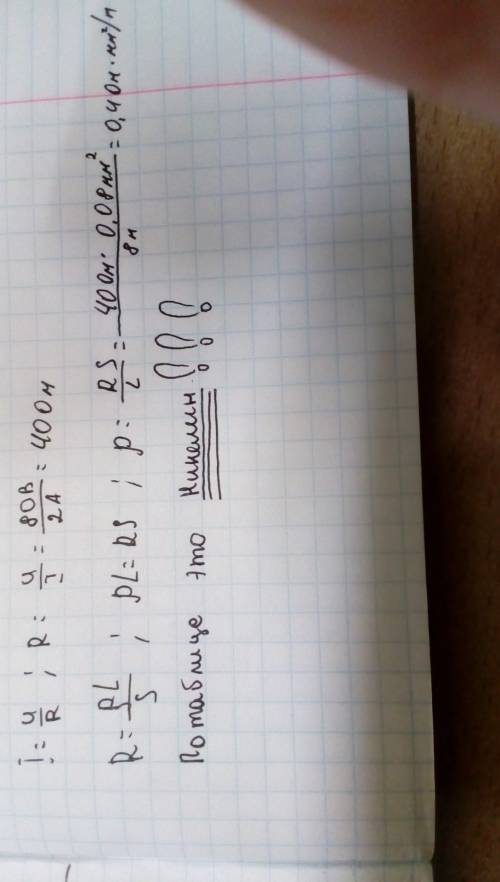 I = U/R ; R = U/I = 80В/2А = 40 Ом
R = ρL/S ; ρL = RS ; ρ = RS/L = 40 Ом · 0,08 мм²/8 м = 0,4 Ом · мм²/м
По таблице это Никелин !!!